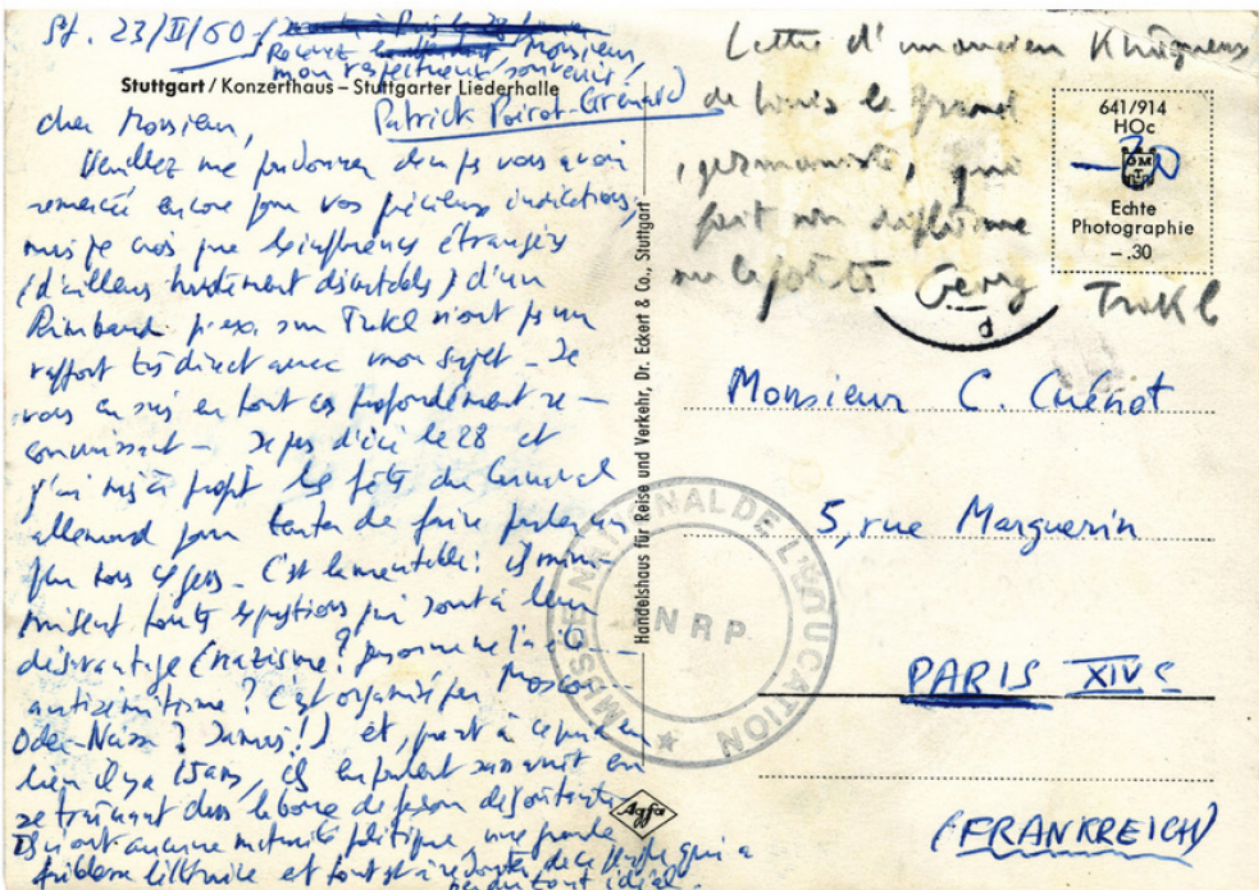 St. 23/II/60
Recevez Monsieur,
mon respectueux souvenir!
Patrick Poirot-Grénard
Stuttgart / Konzerthaus – Stuttgarter Liederhalle
cher Monsieur,
Veuillez me pardonner de ne pas vous avoir
remercié encore pour vos précieuses indications,
mais je crois que les influences étrangères
(d'ailleurs hautement discutables) d'un
Rimbaud p. ex. sur Trakl n'ont pas un
rapport très direct avec mon sujet – Je
vous en suis en tout cas profondément re-
connaissant – Je pars d'ici le 28 et
j'ai mis à profit les fêtes du Carnaval
allemand pour tenter de faire parler un
peu tous ces gens – C'est lamentable: ils mini-
misent toutes les questions qui sont à leur
désavantage (nazisme? personne ne l'a été...
antisémitisme? C'est organisé par Moscou...
Oder-Neisse? Jamais!) et, quant à ce qui a eu
lieu il y a 15 ans, ils en parlent en
se traînant dans la boue de façon dégoûtante
Ils n'ont aucune maturité politique, une grande
faiblesse et tout est à redouter de ce peuple qui a
perdu tout idéal.
Handelshaus für Reise und Verkehr, Dr. Eckert & Co., Stuttgart
Agfa
Lettre d'un ancien Khâgneux
de Louis le Grand
, germaniste, qui
fait son diplôme
sur le poète Georg Trakl
641/914
HOc
–30
GM
T
Echte
Photographie
–.30
d
Monsieur C. Cuénot
5, rue Marguerin
PARIS XIVe
(FRANKREICH)
MUSEE NATIONAL DE L'EDUCATION
INRP